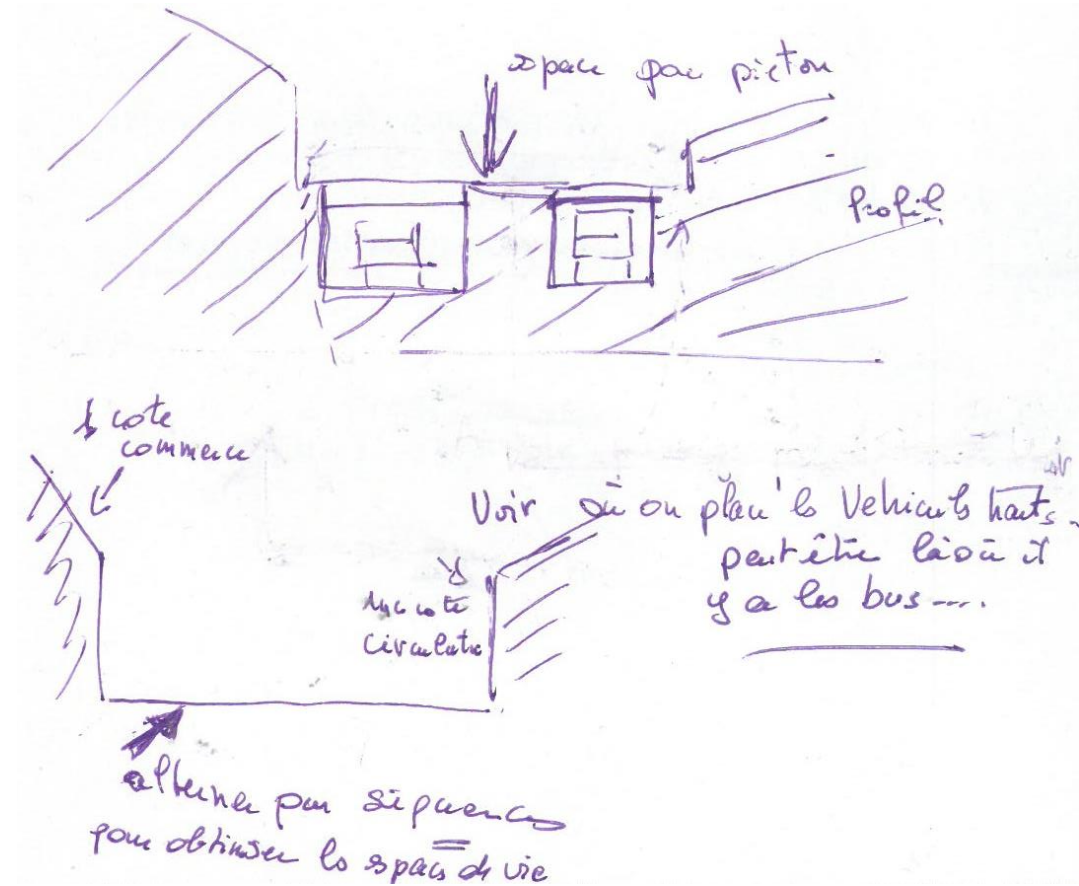 espace pour pieton
Profil
1 cote
commerce
Voir où on place les Vehicules hauts
peut être là où il
y a les bus ....
1 cote
circulatio
alterner par séquences
pour obtimiser les espaces de vie